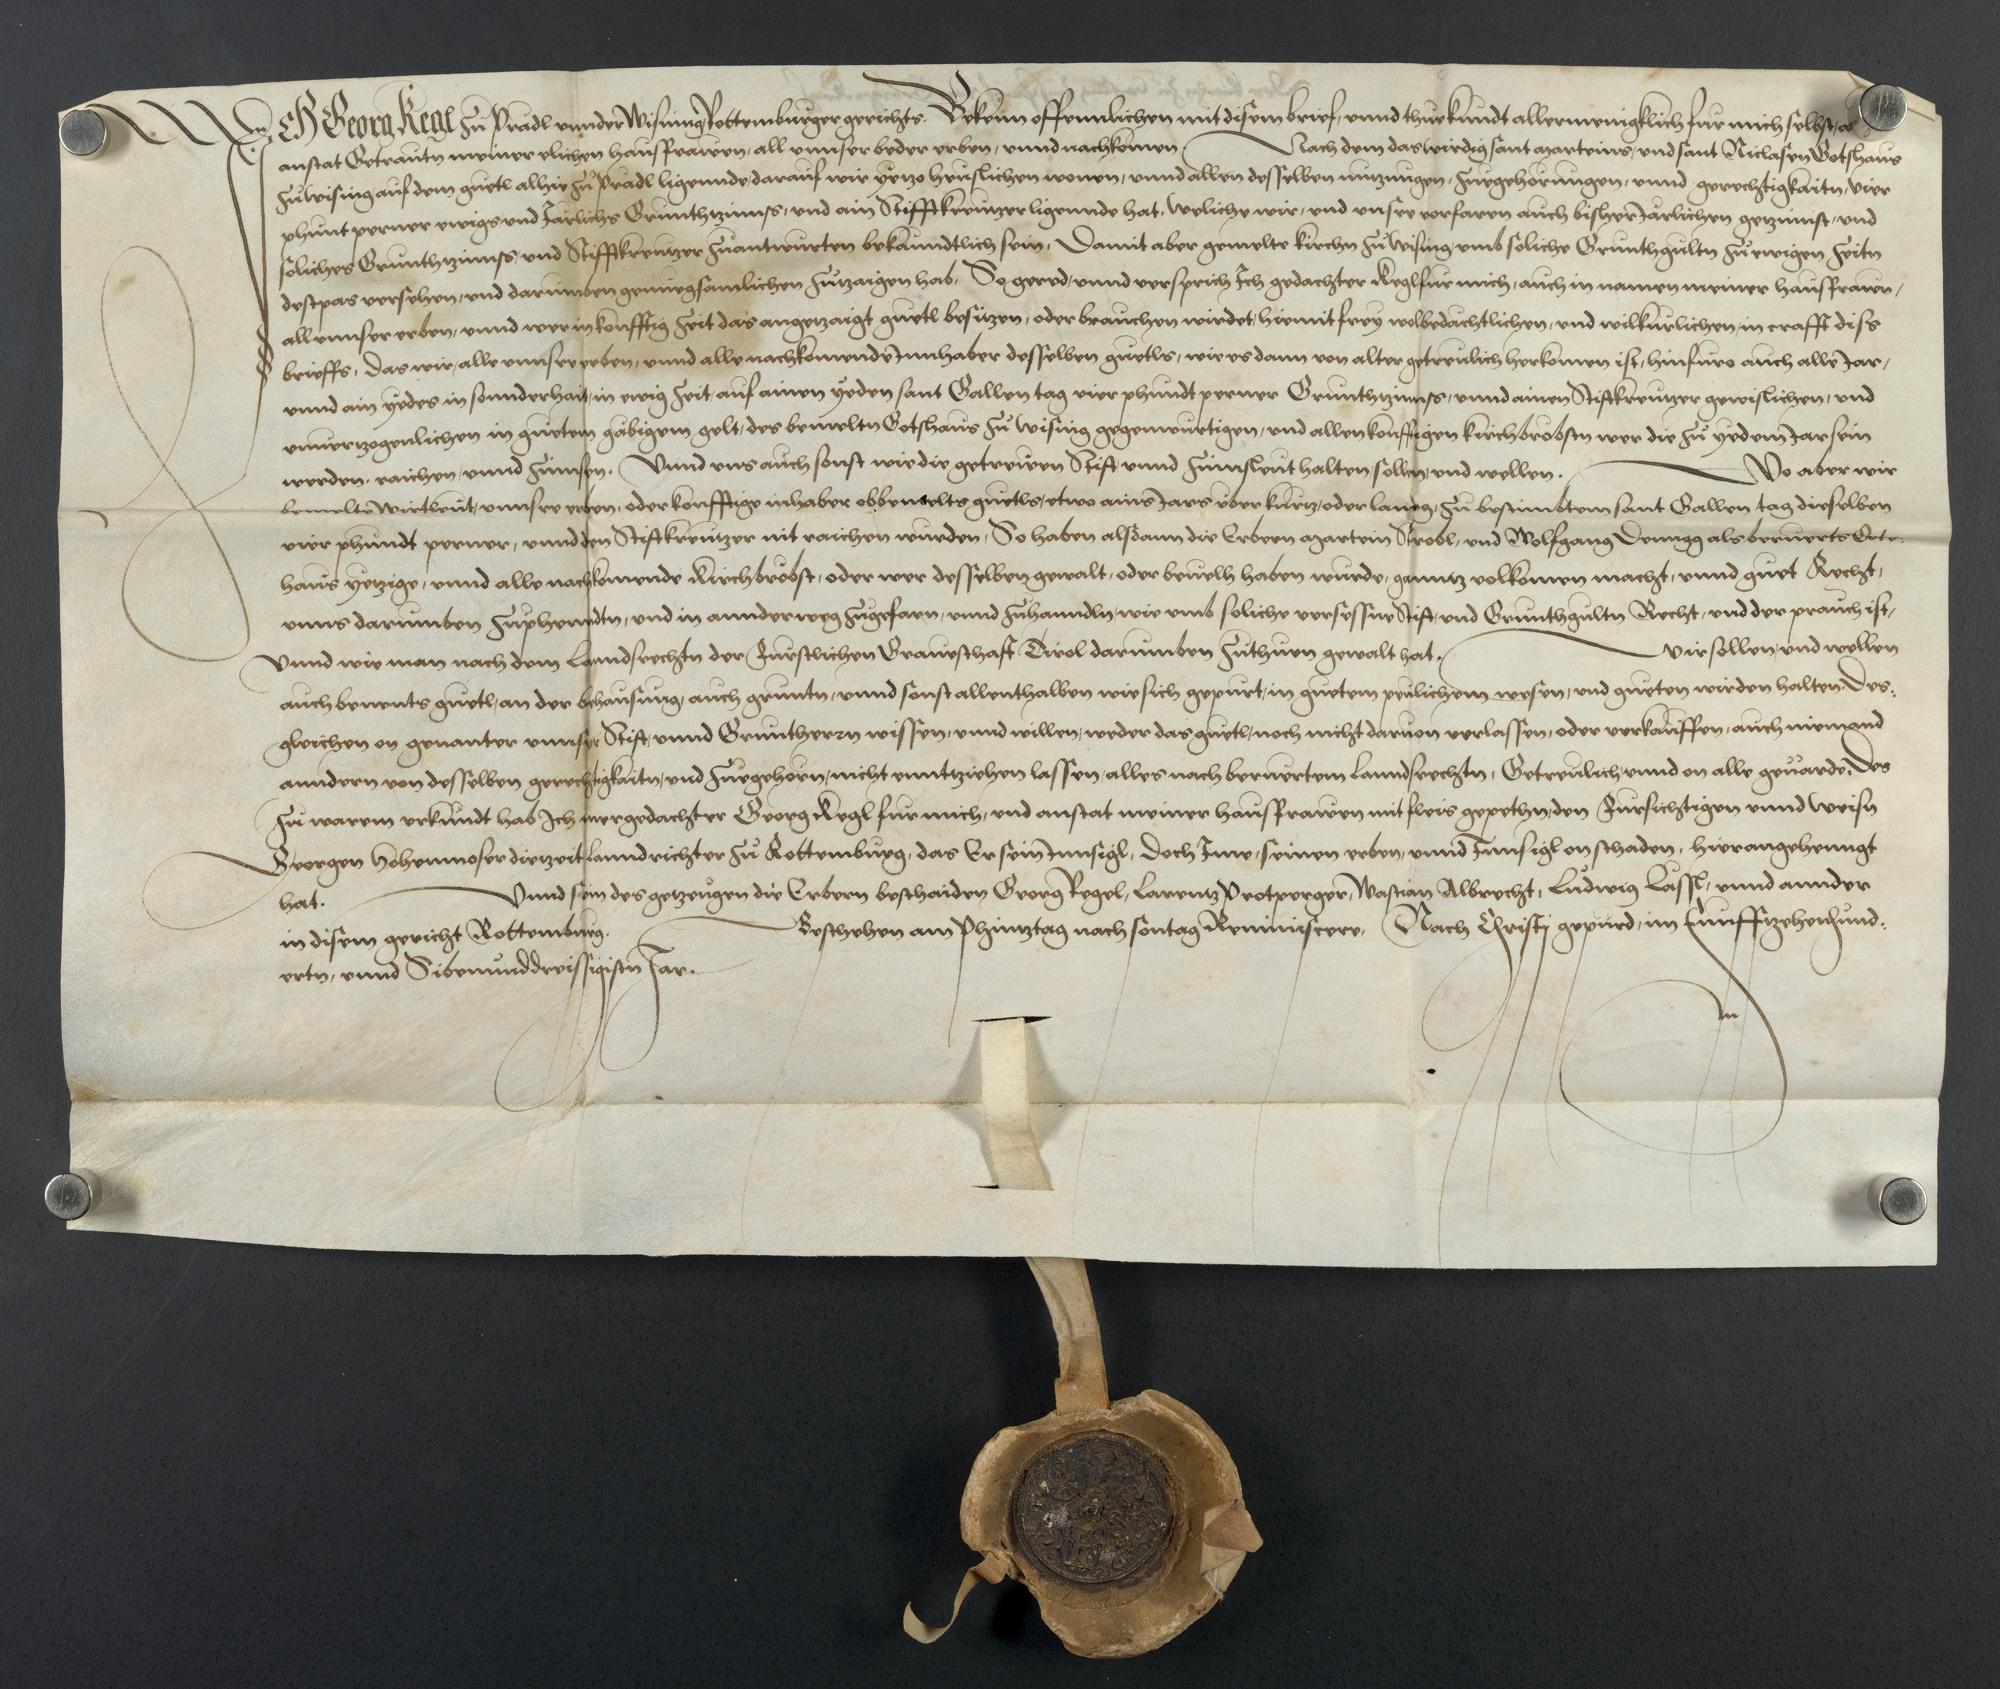 Ich Georg Regl zu Prädl vnnder Wising Rottemburger gerichts. Bekenn offennlichen mit disem brief, vnnd thue kundt allermenigklich fur mich selbst, als
anstat Getrautn meiner elichen hausfrawen, all vnnser beder erben, vnnd nachkomen. Nach dem das wirdig sant Marteins, vnd sant Niclasen Gotshaus
zu Wising auf dem guetl alhie zu Prädl ligennde, darauf wir yetzo heuslichen wonen, vnnd allen desselben nutzungen, zuegehorungen, vnnd gerechtigkaitn, vier
phunt perner ewigs vnd Järlichs Grunthtzinnss, vnd ain Stifftkreutzer ligennde hat, weliche wir, vnd vnsre vorfaren auch bisher Järlichen getzinnst, vnd
soliches Grunthtzinnss, vnd Stifftkreutzer zu antwurten bekanndtlich sein, Damit aber gemelte kirchn zu Wising, vmb soliche Grunthgultn zu ewigen zeitn
destpas versehen, vnd darumben genuegsamlichen zutzaigen hab, So gered, vnnd versprich Ich gedachter Regl fur mich, auch in namen meiner hausfrawen,
all vnnser erben, vnnd wer in konfftig zeit das angetzaigt guetl besitzen, oder brauchen wirdet, hiemit frey wolbedachtlichen, vnd wilkurlichen, in crafft diss
brieffs, Das wir, alle vnnsre erben, vnnd alle nachkomende Innhaber desselben guetls, wie es dann von alter getreulich herkomen ist, hinfuro auch alle Jar,
vnnd ain yedes in sonnderhait, in ewig zeit, auf ainen yeden sant Gallen tag vier phundt perner Grunthtzinnss, vnnd ainen Stiftkreutzer gewislichen, vnd
vnuertzogenlichen in guetem gäbigem gelt, des bemeltn Gotshaus zu Wising gegenwurtigen, vnd allen konfftigen kirchbröbstn wer die zu yedem Jar sein
werden, raichen, vnnd zinnsen. Vnnd vns auch sonst wie die getrewen Stift vnnd zinnsleut halten sollen, vnd wellen. Wo aber wir
bemelte Wirtleut, vnnsre erben, oder konfftige inhaber obbemelts guetls, etwo ains Jars uber kurtz, oder lanng, zu bestimbtem sant Gallen tag dieselben
vier phundt perner, vnnd den Stiftkreutzer nit raichen wurden, So haben alsdann die Erbern Martein Strobl, vnd Wolfgang Dennigg als beruerts Gots-
haus yetzige, vnnd alle nachkomende Kirchbröbst, oder wer desselben gewalt, oder beuelh haben wurde, ganntz volkomen macht, vnnd guet Recht,
vnns darumben zuphenndtn, vnd in annder weg zugefarn, vnnd zuhanndln, wie vmb soliche versessne Stift, vnd Grunthgultn Recht, vnd der prauch ist,
Vnnd wie man nach dem Lanndsrechtn der Furstlichen Graueschaft Tirol darumben zuthuen gewalt hat. Wir sollen, vnd wellen
auch benents guetl, an der behausung, auch gruntn, vnnd sonst allenthalben wie sich gepurt, in guetem peulichem wesen, vnd gueten wirden halten. Des-
gleichen on genanter vnnser Stift, vnnd Grunthern wissen, vnnd willen, weder das guetl, noch nicht daruon verlassen, oder verkauffen, auch niemand
anndern von desselben gerechtigkaitn, vnd zuegehorn, nicht enntziehen lassen, alles nach beruertem Lanndsrechtn, Getreulich, vnnd on alle geuärde. Des
zu warem vrkundt hab Ich mergedachter Georg Regl fur mich, vnd anstat meiner hausfrawen mit fleis gepethn, den Fursichtigen vnnd Weisn
Georgen Hohenmoser dietzeit Lanndrichter zu Rottemburg, das Er sein Innsigl, doch Ime, seinen erben, vnnd Innsigl on schaden, hieran gehenngt
hat. Vnnd sein des getzeugen die Erbern beschaiden Georg Regel, Larentz Protperger, Wastian Albrecht, Ludwig Lässl, vnnd annder
in disem gericht Rottemburg. Beschehen am Phintztag nach sontag Reminiscere, Nach Christj gepurd, im Funfftzehenhund-
ertn, vnnd Sibenunddreissigistn Jar.